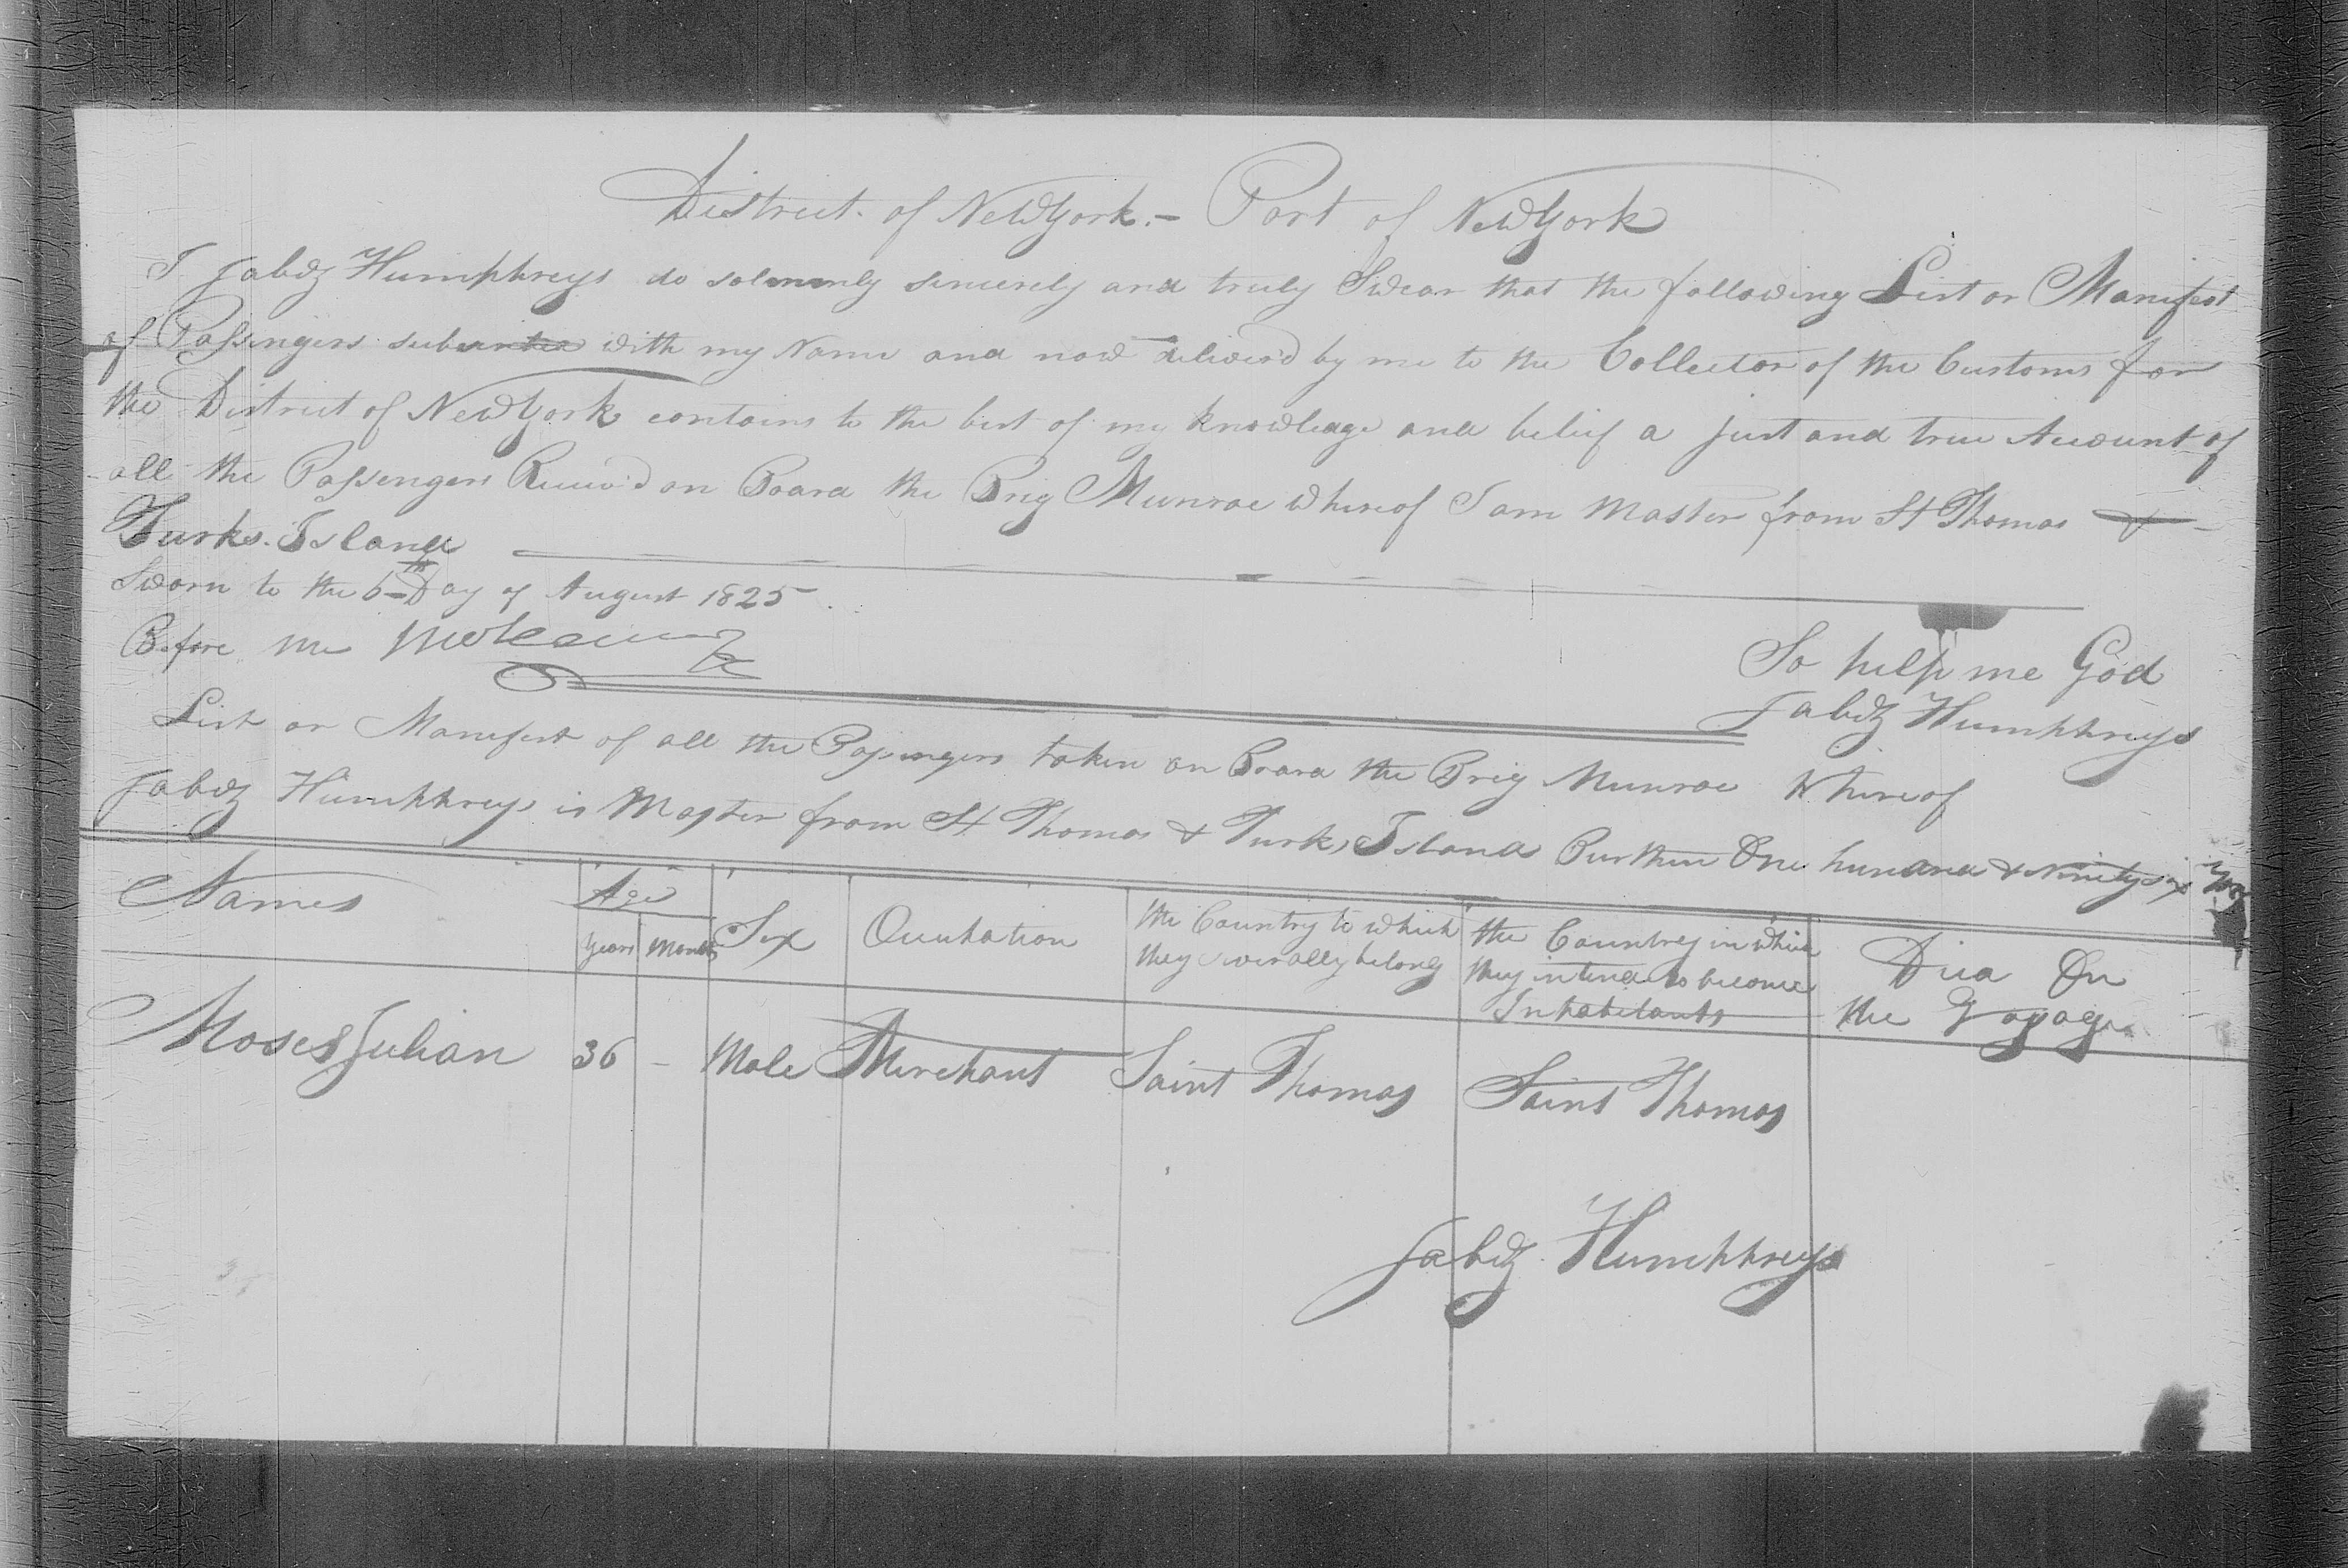 District of New York.– Port of New York
I Jabez Humphreys do solemnly sincerely and truly Swear that the following List or Manifest
of Passengers with my Name and now deliver'd by me to the Collector of the Customs for
the District of New York contains to the best of my knowledge and belief a just and true Account of
all the Passengers Receiv'd on Board the Brig Munroe whereof I am Master from St Thomas &
Turks Island
Sworn to the 6th Day of August 1825
Before me
So help me God
Jabez Humphreys
List or Manifest of all the Passengers taken on Board the Brig Munroe Whereof
Jabez Humphreys is Master from St Thomas & Turks Island Burthen One hundred & Ninety six
Names
Age
Years Months
Sex
Occupation
the Country to which
they severally belong
the Country in which
they intend to become
Inhabitants
Died On
the Voyage
Moses Julian 36 – Male Merchant Saint Thomas Saint Thomas
Jabez Humphreys